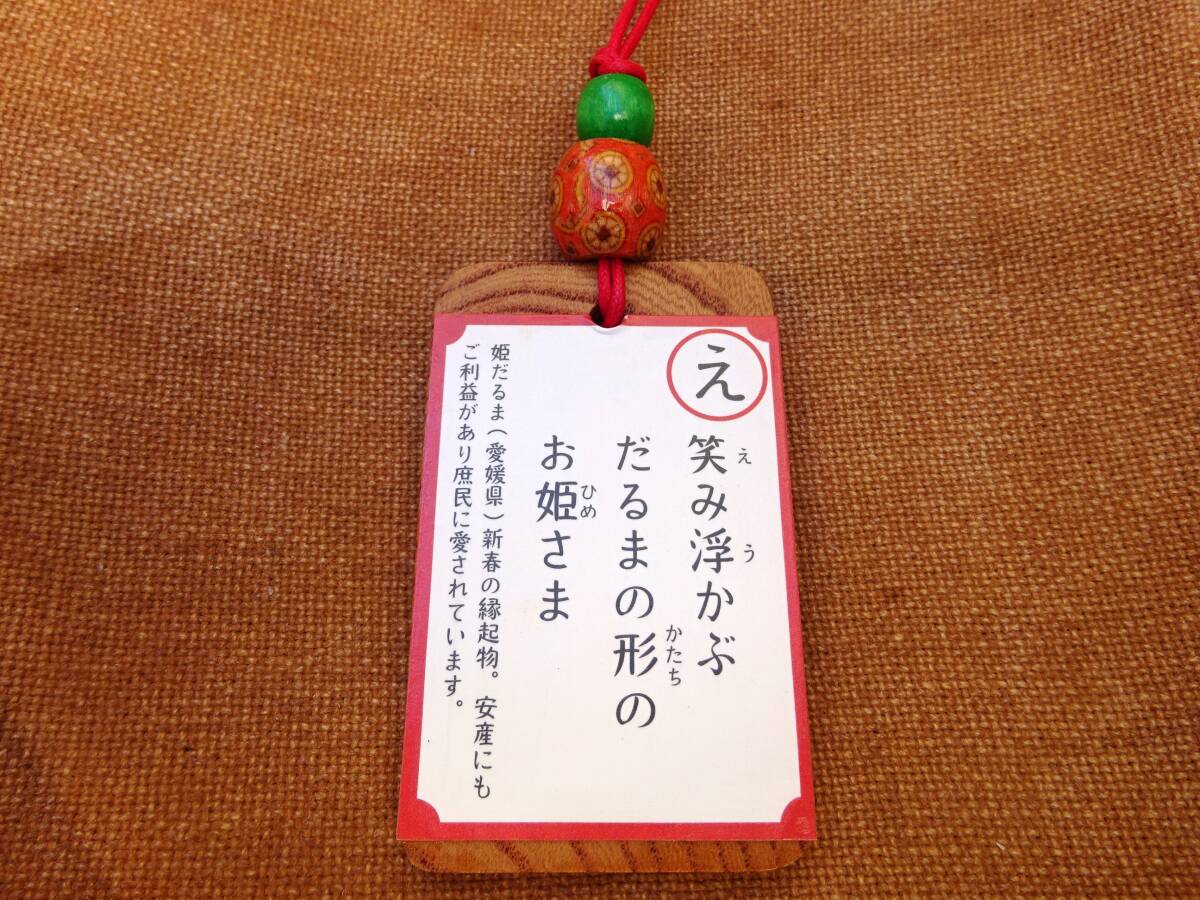 え
笑み浮かぶ
だるまの形の
お姫さま
え
う
かたち
ひめ
姫だるま（愛媛県）新春の縁起物。安産にも
ご利益があり庶民に愛されています。